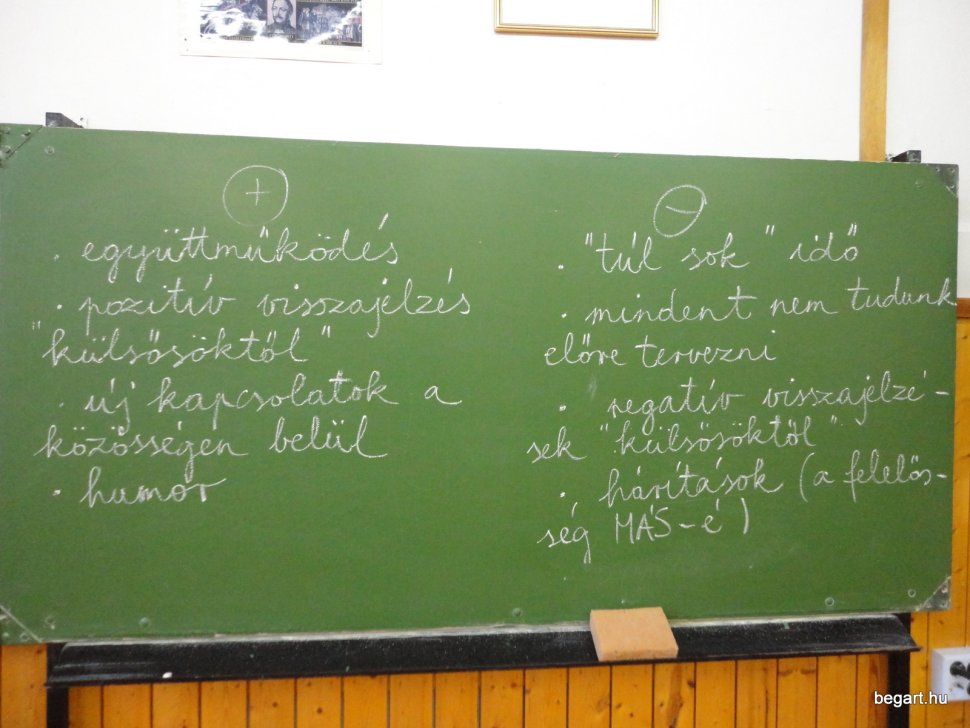 +
· együttműködés
· pozitív visszajelzés
"külsősöktől"
· új kapcsolatok a
közösségen belül
· humor
-
· "túl sok" idő
· mindent nem tudunk
előre tervezni
· negatív visszajelzé-
sek "külsősöktől"
· hárítások (a felelős-
ség MÁS-é)
begart.hu